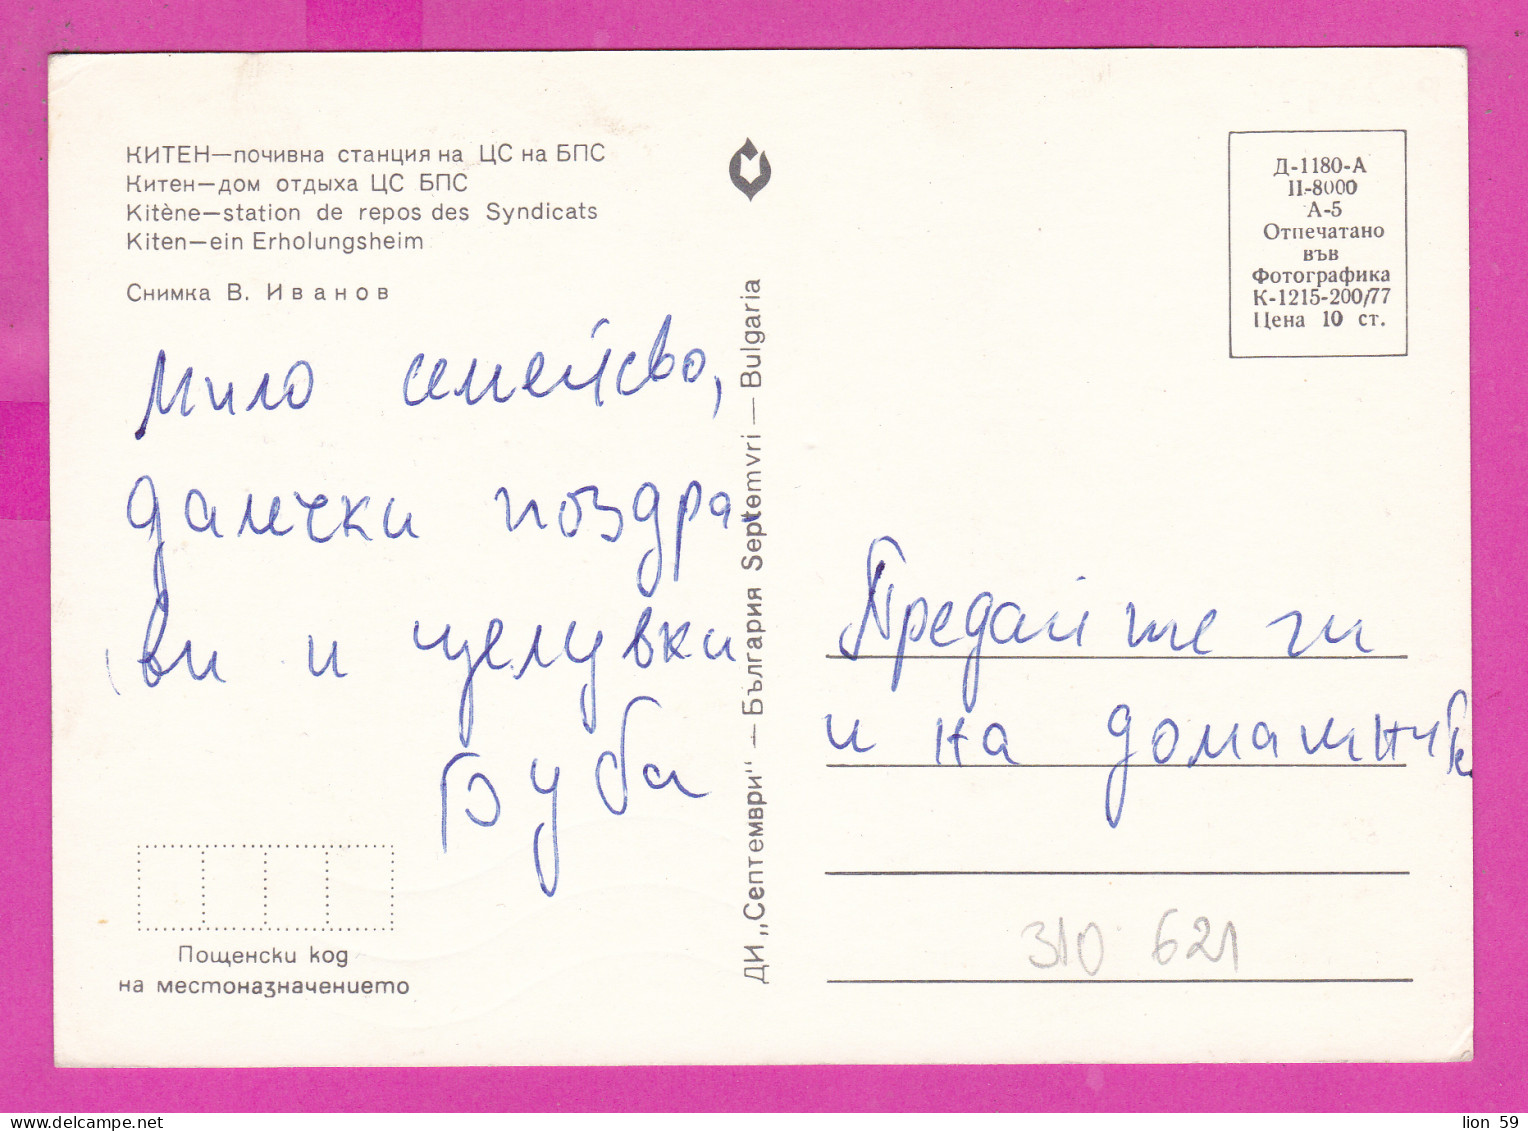 КИТЕН—почивна станция на ЦС на БПС
Китен—дом отдыха ЦС БПС
Kitène—station de repos des Syndicats
Kiten—ein Erholungsheim
Снимка В. Иванов
Мило семейсво,
далечки поздра-
ви и целувки
Буба
Пощенски код
на местоназначението
ДИ „Септември" — България Septemvri — Bulgaria
Д-1180-А
II-8000
А-5
Отпечатано
във
Фотографика
К-1215-200/77
Цена 10 ст.
Предайте ги
и на домашните
310 621
lion 59